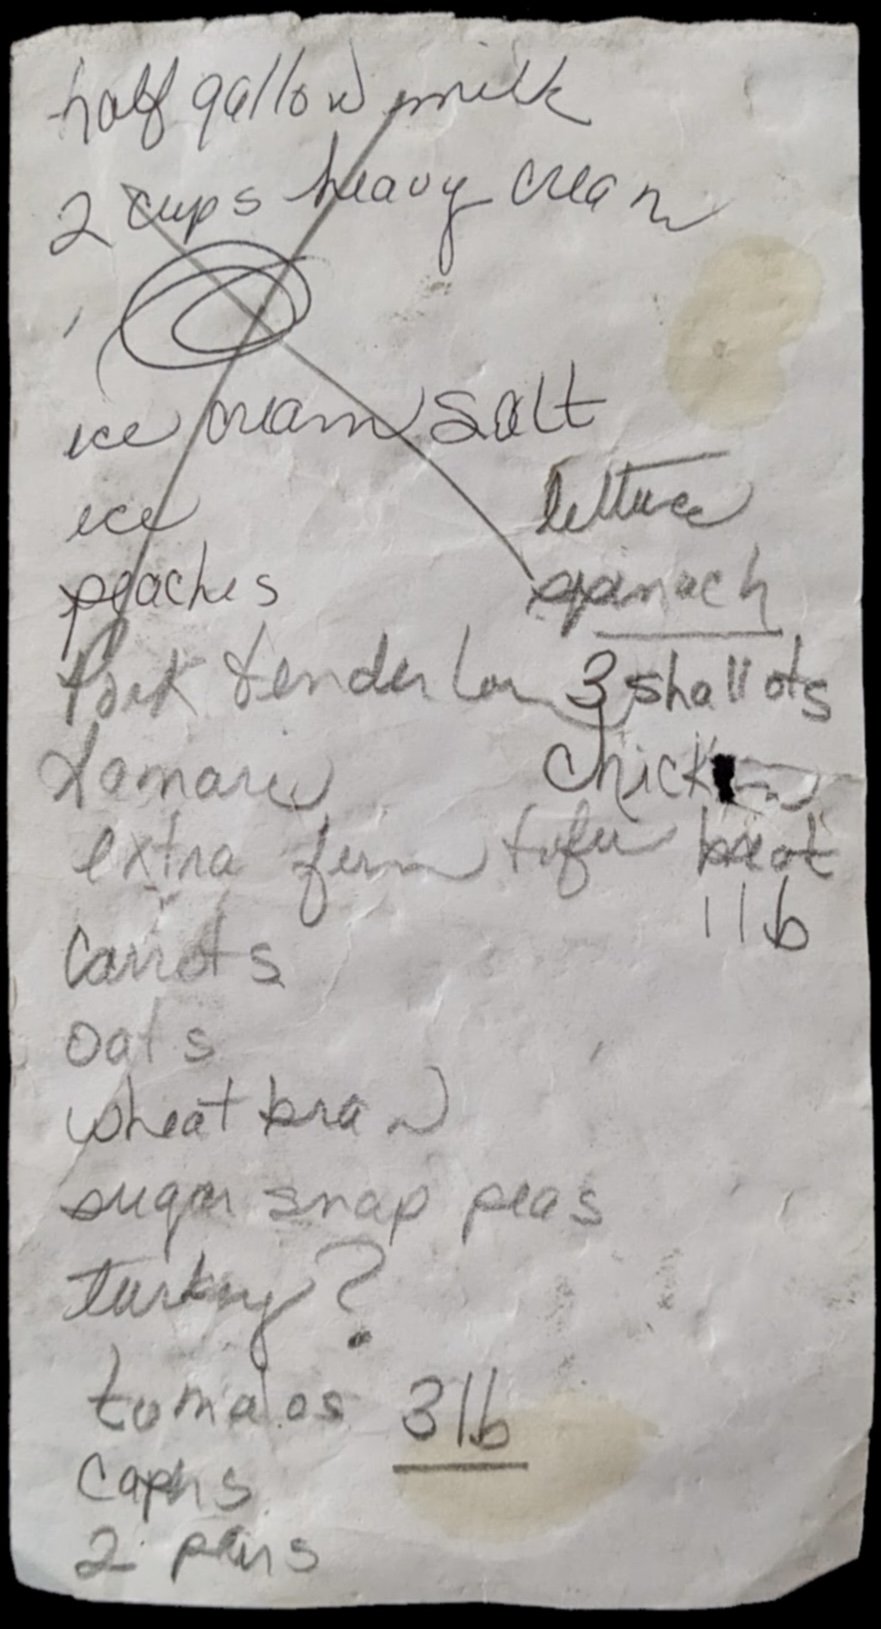 half gallon milk
2 cups heavy cream
ice cream salt
ice
peaches
Pork tenderloin
tamari
extra firm tofu
carrots
oats
wheat bran
sugar snap peas
turkey?
tomatos 3 lb
capers
2 pears
lettuce
spinach
3 shallots
chicken
breat
1 lb